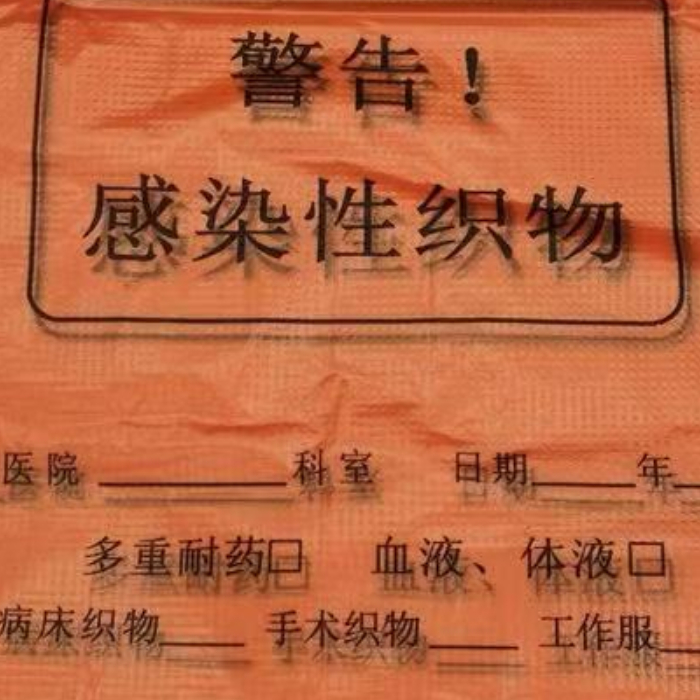 警告！
感染性织物
医院______科室 日期____年
多重耐药□ 血液、体液□
病床织物____ 手术织物____ 工作服